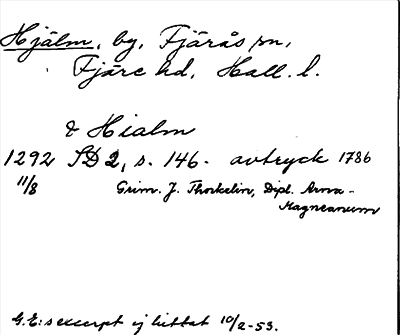 Hjälm, by, Fjärås sn,
Fjäre hd, Hall. l.
& Hialm
1292 SD 2, s. 146. avtryck 1786
11/8 Grim. J. Thorkelin, Dipl. Arna-
Magneanum
G.E:s excerpt ej hittat 10/2-53.